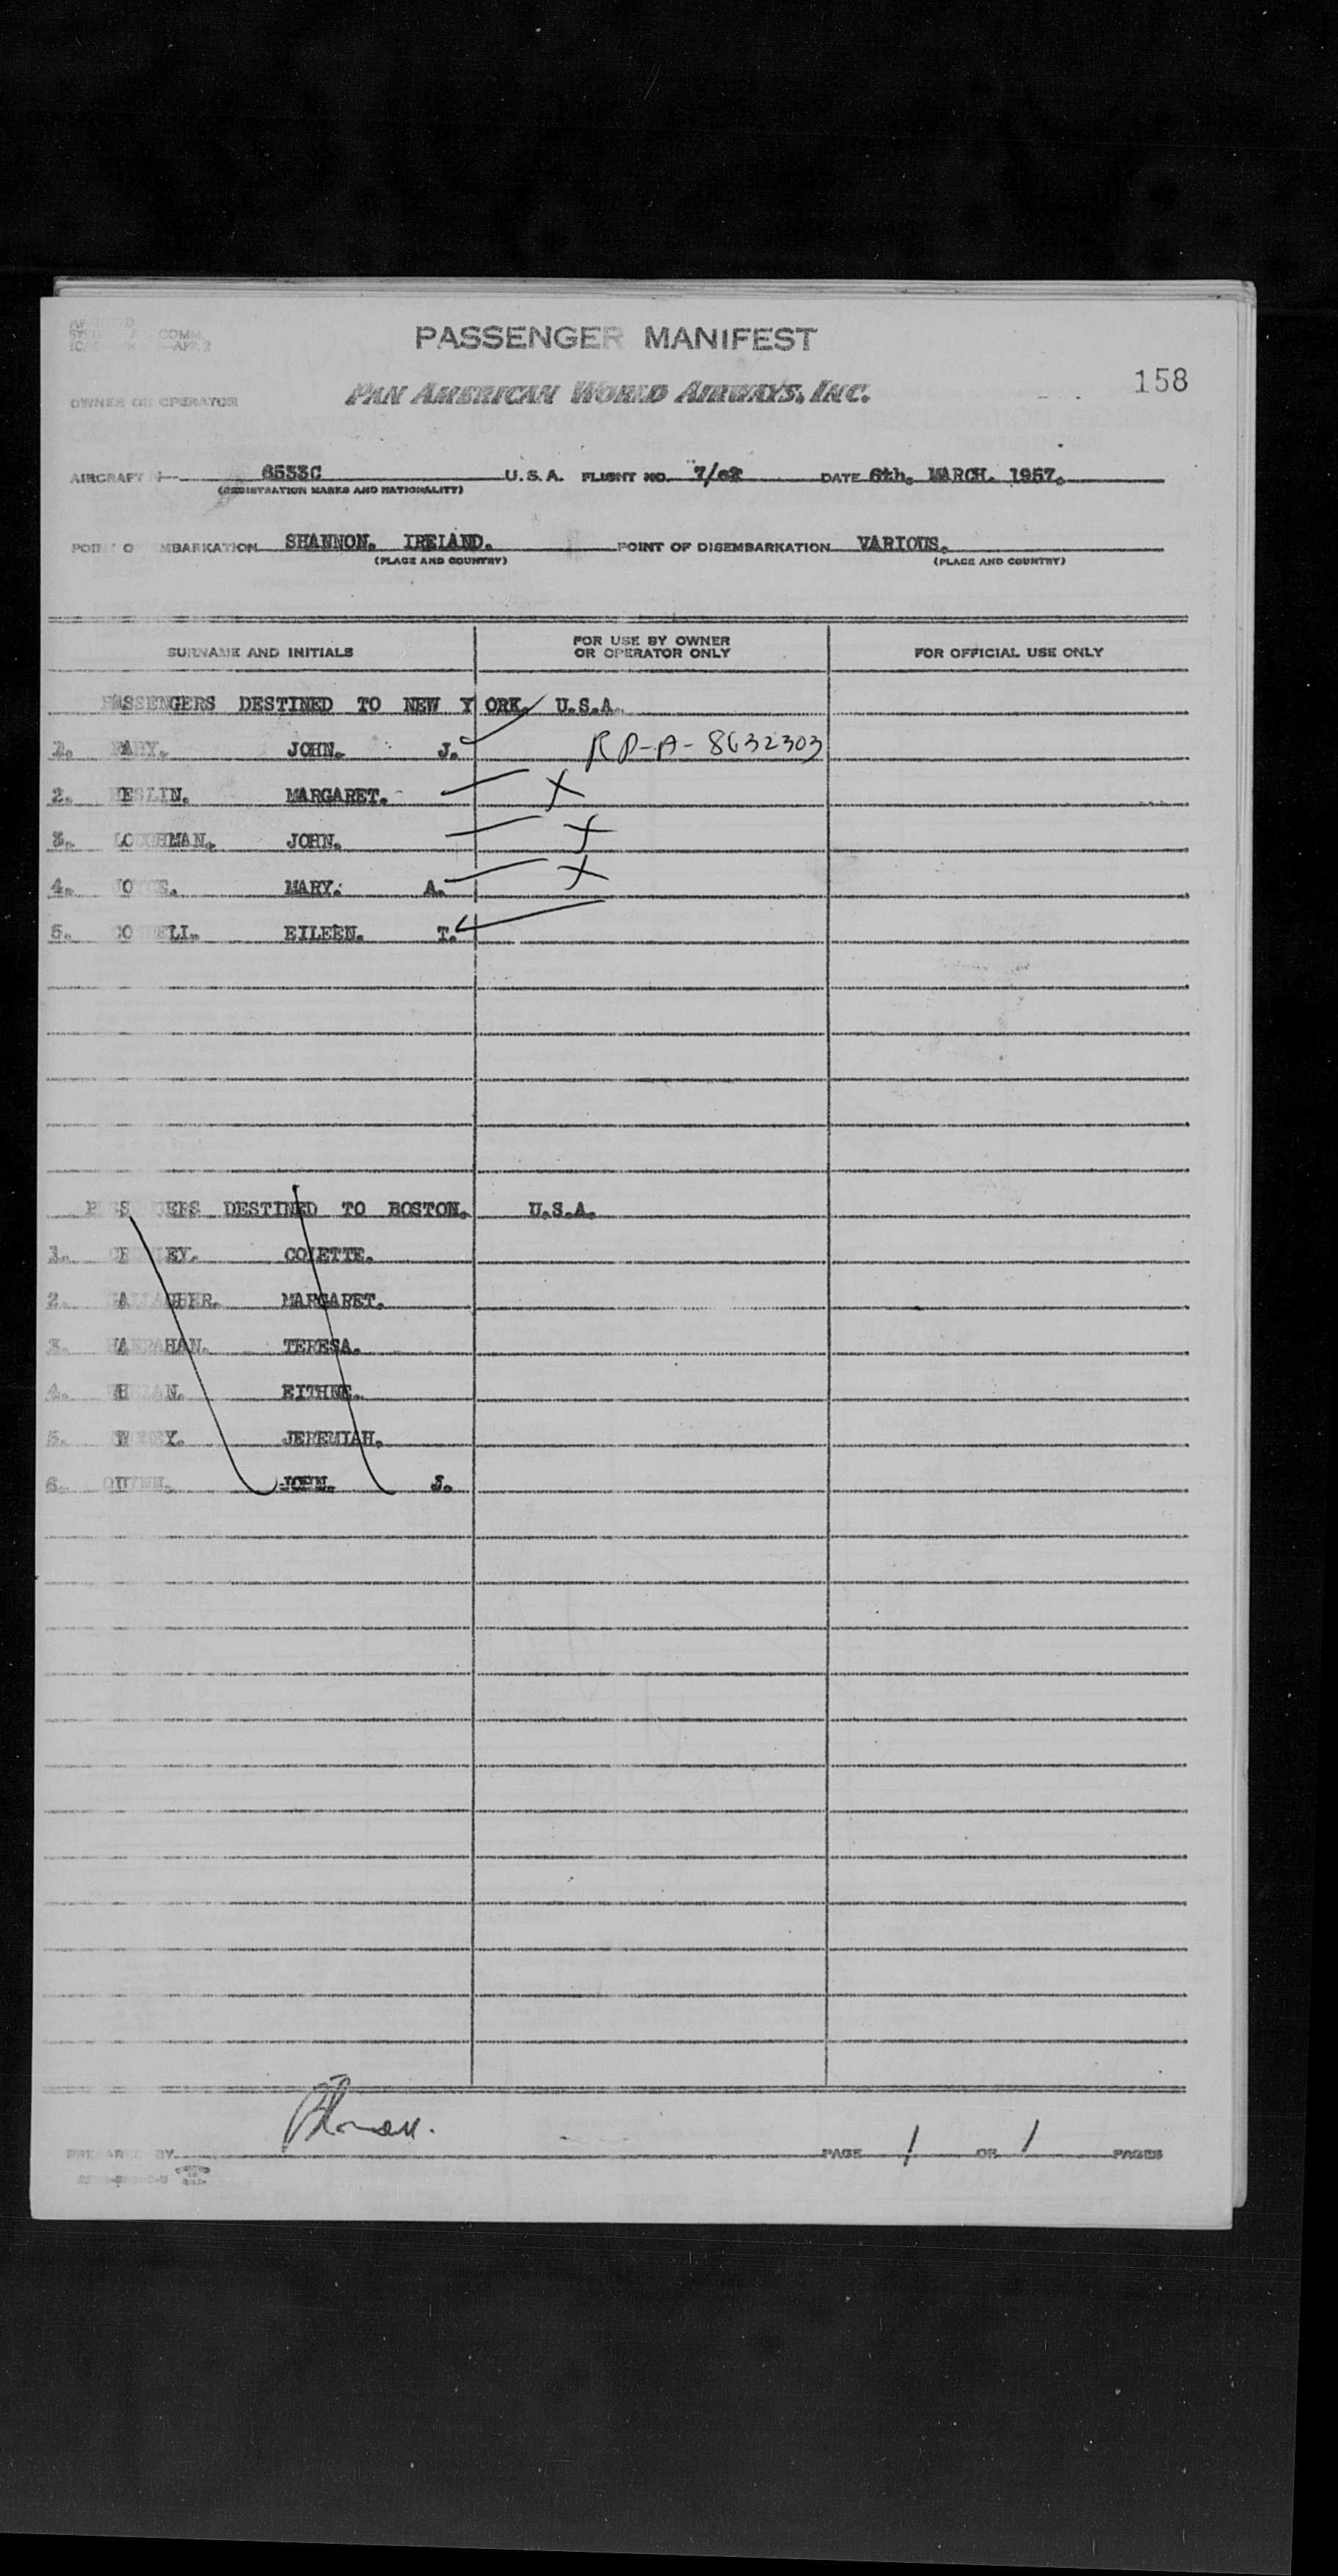 COMM.
PASSENGER MANIFEST
158
OWNER OR OPERATOR PAN AMERICAN WORLD AIRWAYS, INC.
AIRCRAFT N 6533C U.S.A. FLIGHT NO. 7/62 DATE 6th. MARCH. 1957.
(REGISTRATION MARKS AND NATIONALITY)
POINT OF EMBARKATION SHANNON. IRELAND. POINT OF DISEMBARKATION VARIOUS.
(PLACE AND COUNTRY) (PLACE AND COUNTRY)
SURNAME AND INITIALS FOR USE BY OWNER OR OPERATOR ONLY FOR OFFICIAL USE ONLY
PASSENGERS DESTINED TO NEW YORK. U.S.A.
1. FAHY. JOHN. J. RP-A-8632303
2. HESLIN. MARGARET. X
3. LOUGHMAN. JOHN. X
4. JOYCE. MARY. A. X
5. EILEEN. T.
PASSENGERS DESTINED TO BOSTON. U.S.A.
1. COLETTE.
2. GALLAGHER. MARGARET.
3. HANRAHAN. TERESA.
4. WHELAN. EITHNE.
5. TWOMEY. JEREMIAH.
6. QUINN. JOHN. J.
PREPARED BY PAGE 1 OF 1 PAGES